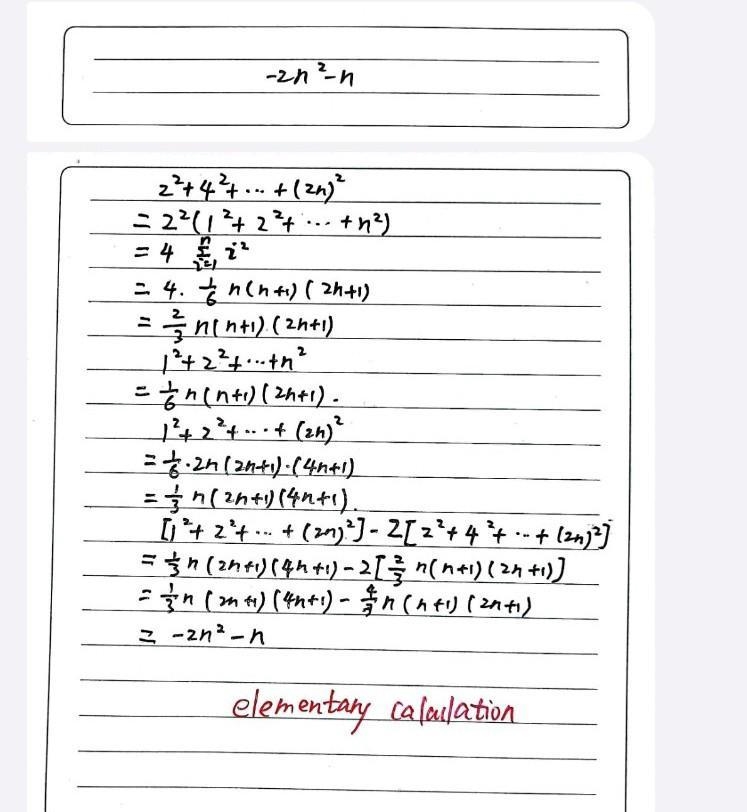 -2n²-n
2²+4²+...+(2n)²
=2²(1²+2²+...+n²)
=4 \sum_{i=1}^{n} i²
=4. 1/6 n(n+1)(2n+1)
=2/3 n(n+1).(2n+1)
1²+2²+...+n²
=1/6 n(n+1)(2n+1).
1²+2²+...+(2n)²
=1/6·2n(2n+1)·(4n+1)
=1/3 n(2n+1)(4n+1).
[1²+2²+...+(2n)²]-2[2²+4²+...+(2n)²]
=1/3 n(2n+1)(4n+1)-2[2/3 n(n+1)(2n+1)]
=1/3 n(2n+1)(4n+1)-4/3 n(n+1)(2n+1)
=-2n²-n
elementary calculation